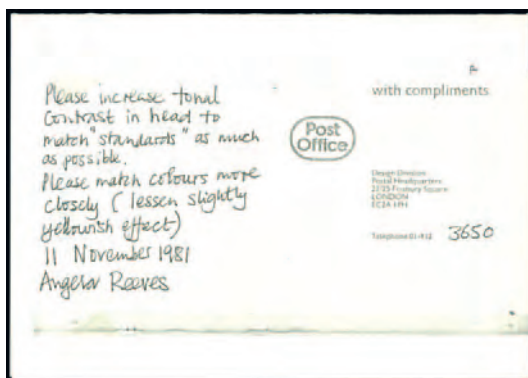 Please increase tonal
Contrast in head to
match "standards" as much
as possible.
Please match colours more
closely (lessen slightly
yellowish effect)
11 November 1981
Angela Reeves
Post
Office
with compliments
Design Division
Postal Headquarters
Finsbury Square
LONDON
EC2A
Telephone 01-432 3650